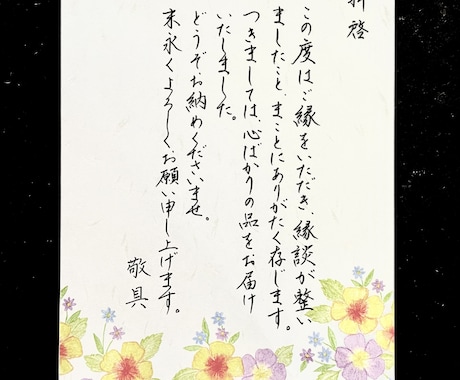 拝啓
この度はご縁をいただき、縁談が整い
ましたこと、まことにありがたく存じます。
つきましては、心ばかりの品をお届け
いたしました。
どうぞお納めくださいませ。
末永くよろしくお願い申し上げます。
敬具